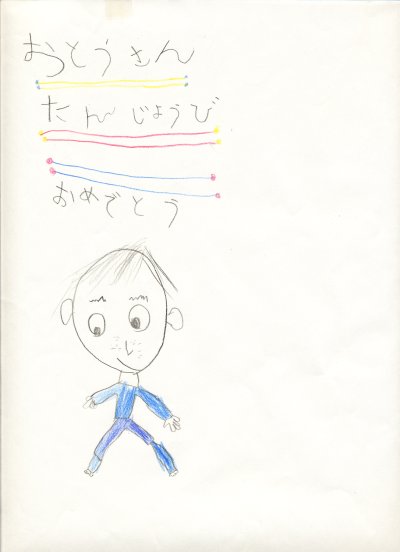 おとうさん
たんじょうび
おめでとう